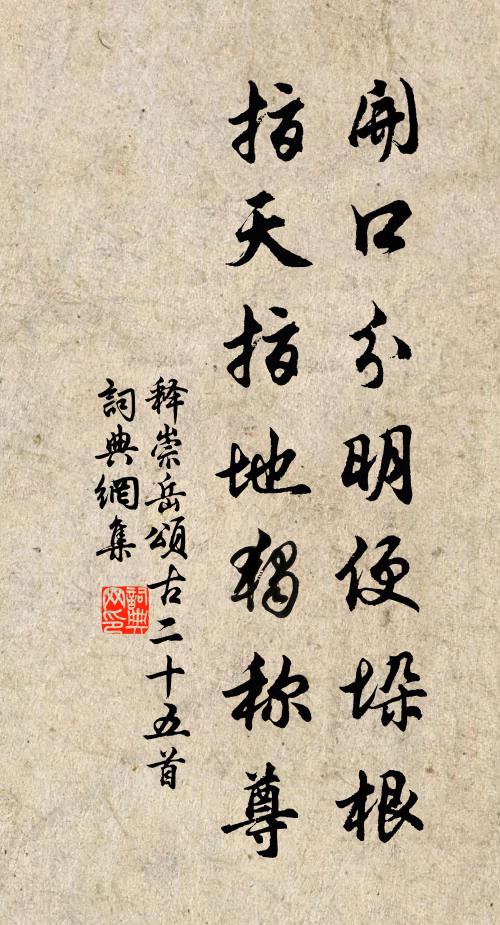 開口分明便垛根
指天指地獨称尊
释崇岳頌古二十五首
詞典網集
詞典
网印